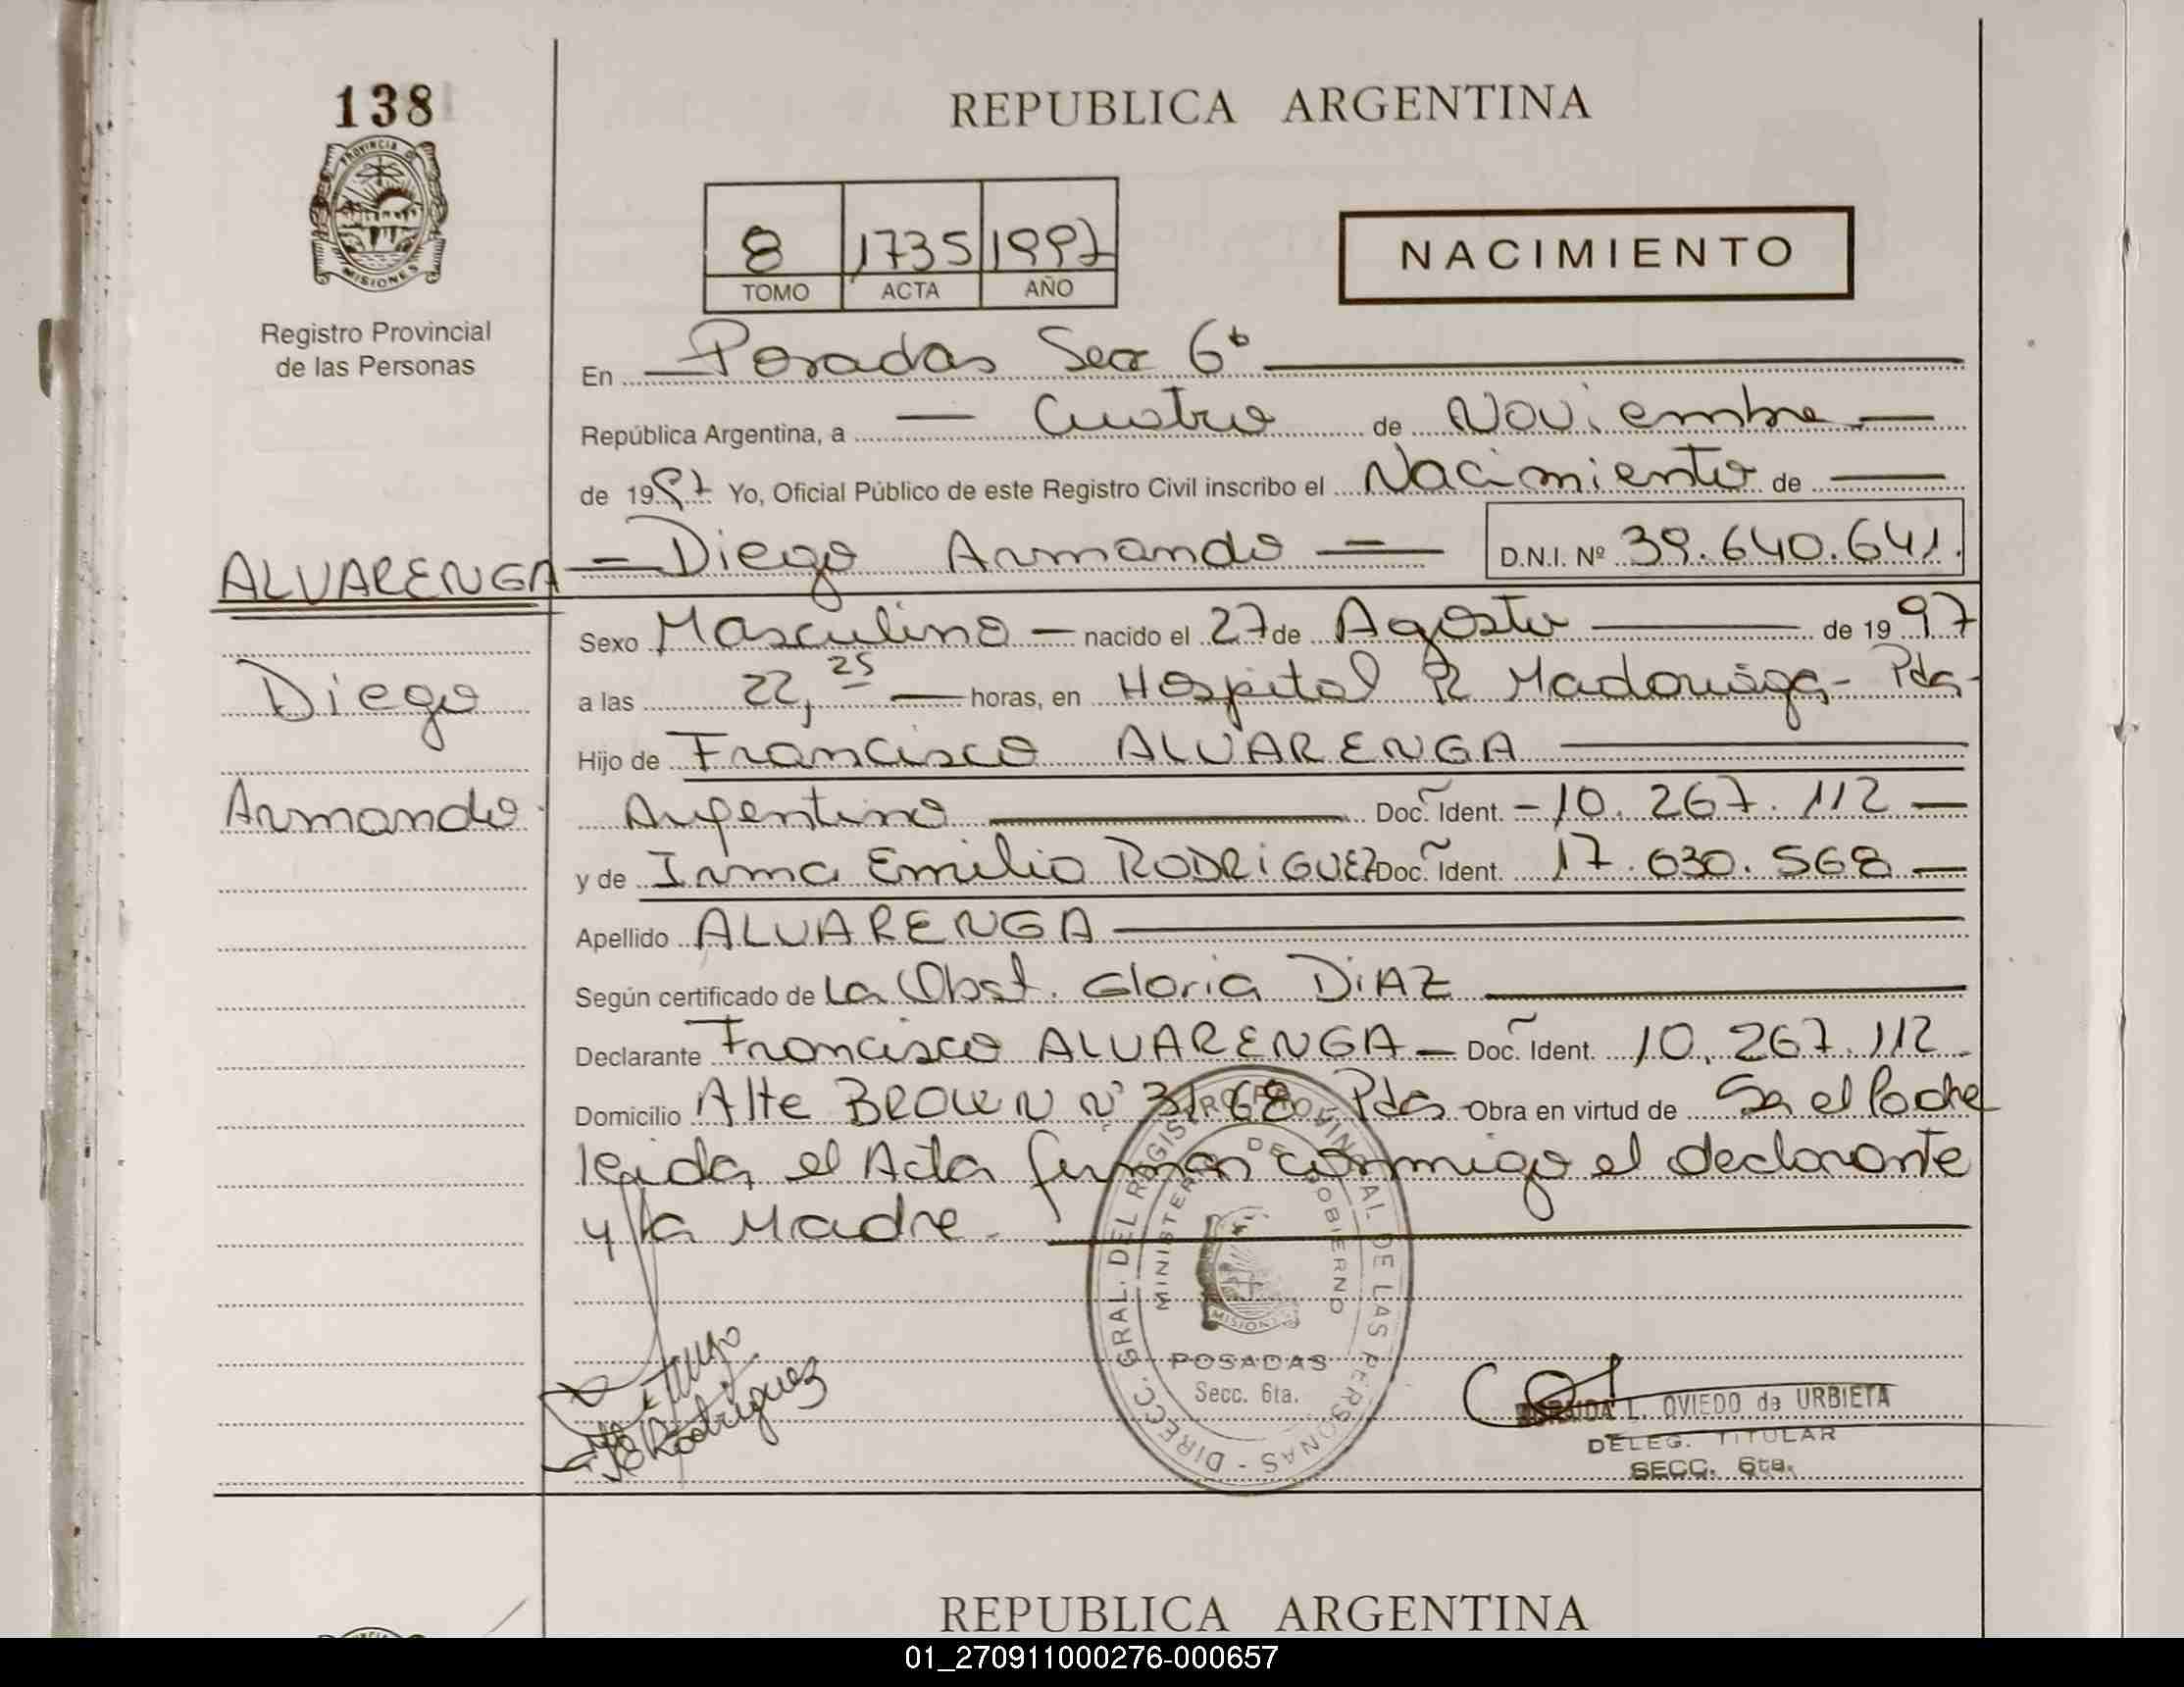 138
REPUBLICA ARGENTINA
PROVINCIA D
MISIONES
Registro Provincial
de las Personas
8 1735 1997
TOMO ACTA AÑO
NACIMIENTO
En Posadas Sec 6ª
República Argentina, a Cuatro de Noviembre
de 1997 Yo, Oficial Público de este Registro Civil inscribo el Nacimiento de
ALVARENGA Diego Armando D.N.I. Nº 39.640.641.
Sexo Masculino nacido el 27 de Agosto de 1997
Diego
a las 22,25 horas, en Hospital R Madariaga - Pdas-
Hijo de Francisco ALVARENGA
Armando
Argentino Doc. Ident. 10.267.112
y de Irma Emilia RODRiGUEZ Doc. Ident. 17.630.568
Apellido ALVARENGA
Según certificado de La Obst. Gloria DiAZ
Declarante Francisco ALVARENGA Doc. Ident. 10.267.112
Domicilio Alte BROWN Nº 3168 Pdas Obra en virtud de Ser el Padre
leida el Acta firman conmigo el declarante
y la Madre.
DIRECC. GRAL. DEL REGISTRO PROVINCIAL DE LAS PERSONAS
MINISTERIO DE GOBIERNO
MISIONES
POSADAS
Secc. 6ta.
Rodriguez
L. OVIEDO de URBIETA
DELEG. TITULAR
SECC. 6ta.
REPUBLICA ARGENTINA
01_270911000276-000657